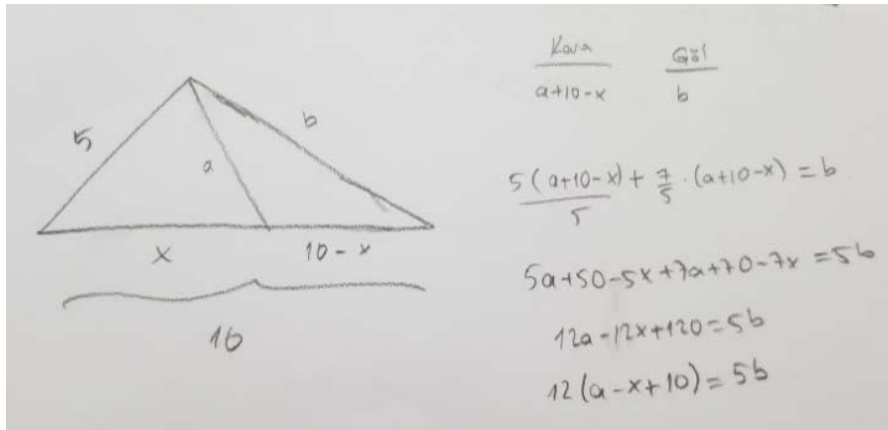 5
a
b
x
10-x
10
Kara Göl
a+10-x b
5(a+10-x)/5 + 7/5 · (a+10-x) = b
5a+50-5x+7a+70-7x = 5b
12a-12x+120=5b
12(a-x+10)=5b